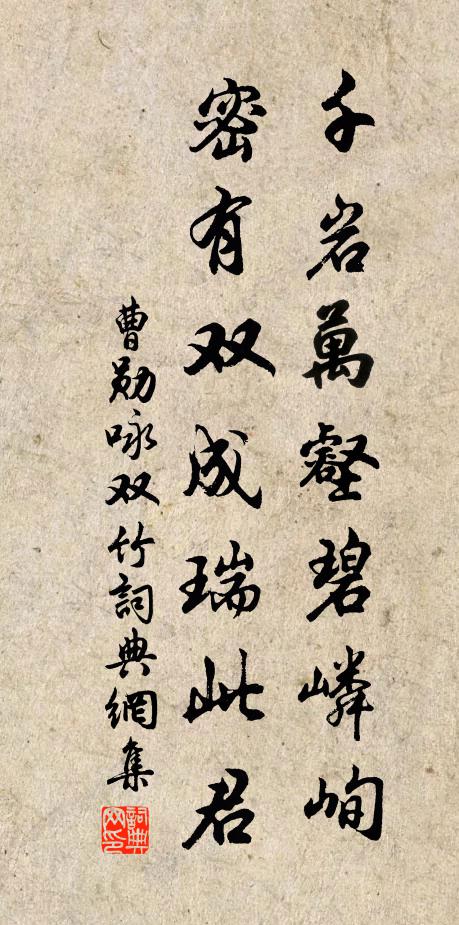 千岩萬壑碧嶙峋
密有双成瑞此君
曹勋咏双竹詞典網集
詞典
网印